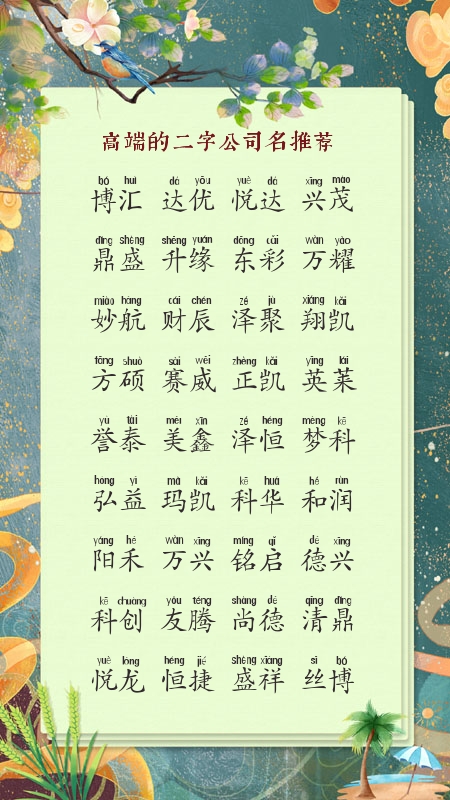 高端的二字公司名推荐
bó huì dá yōu yuè dá xīng mào
博汇 达优 悦达 兴茂
dǐng shèng shēng yuán dōng cǎi wàn yào
鼎盛 升缘 东彩 万耀
miào háng cái chén zé jù xiáng kǎi
妙航 财辰 泽聚 翔凯
fāng shuò sài wēi zhèng kǎi yīng lái
方硕 赛威 正凯 英莱
yù tài měi xīn zé héng mèng kē
誉泰 美鑫 泽恒 梦科
hóng yì mǎ kǎi kē huá hé rùn
弘益 玛凯 科华 和润
yáng hé wàn xīng míng qǐ dé xīng
阳禾 万兴 铭启 德兴
kē chuàng yǒu téng shàng dé qīng dǐng
科创 友腾 尚德 清鼎
yuè lóng héng jié shèng xiáng sī bó
悦龙 恒捷 盛祥 丝博